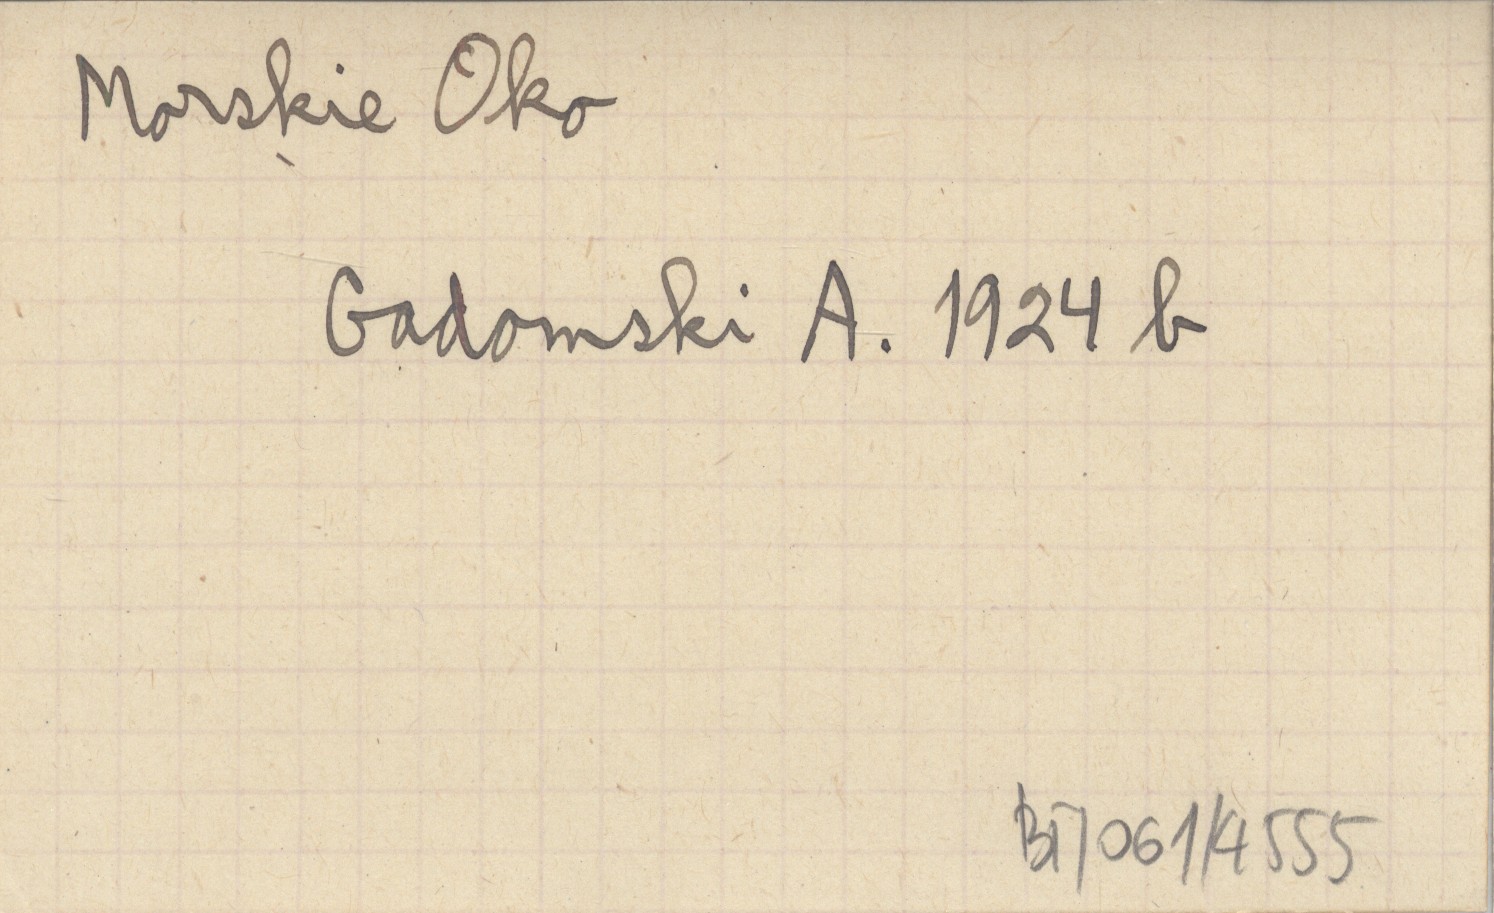 Morskie Oko
Gadomski A. 1924 b
BT/061/4555